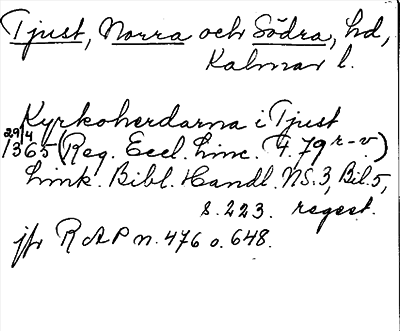 Tjust, Norra och Södra, hd,
Kalmar l.
Kyrkoherdarna i Tjust
29/4
1365 (Reg. Eccl. Linc. f. 79 r-v.)
Link. Bibl. Handl. NS. 3, Bil. 5,
s. 223. regest.
jfr RAP n. 476 o. 648.